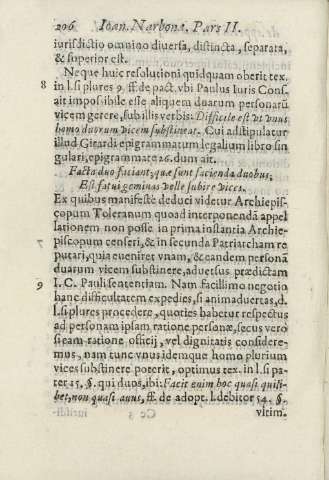 206 Ioan. Narbona. Pars II.
iurisdictio omnino diversa, distincta, separata,
& superior est.
Neque huic resolutioni quidquam oberit tex.
8 in l. si plures 9. ff. de pact. vbi Paulus Iuris Cons.
ait impossibile esse aliquem duarum personarũ
vicem gerere, sub illis verbis: Difficile est vt vnus
homo duorum vicem substineat. Cui adstipulatur
illud Girardi epigrammatum legalium libro sin
gulari, epigrammate 26. dum ait.
Facta duo faciant, quæ sunt facienda duobus,
Est fatui geminas velle subire vices.
Ex quibus manifestè deduci videtur Archiepis-
copum Toleranum quoad interponendã appel
lationem non posse in prima instantia Archie-
7 piscopum censeri, & in secunda Patriarcham re
putari, quia eveniret vnam, & eandem personã
duarum vicem substinere, adversus prædictam
9 I. C. Pauli sententiam. Nam facillimo negotio
hanc difficultatem expedies, si animadvertas, d.
l. si plures procedere, quoties habetur respectus
ad personam ipsam ratione personæ, secus vero
si eam ratione officij, vel dignitatis considere-
mus, nam tunc vnus idemque homo plurium
vices substinere poterit, optimus tex. in l. si pa
ter 15. §. qui duos, ibi: Facit enim hoc quasi quili-
bet, non quasi auus, ff. de adopt. l. debitor 54. §.
Cc 3 vltim.